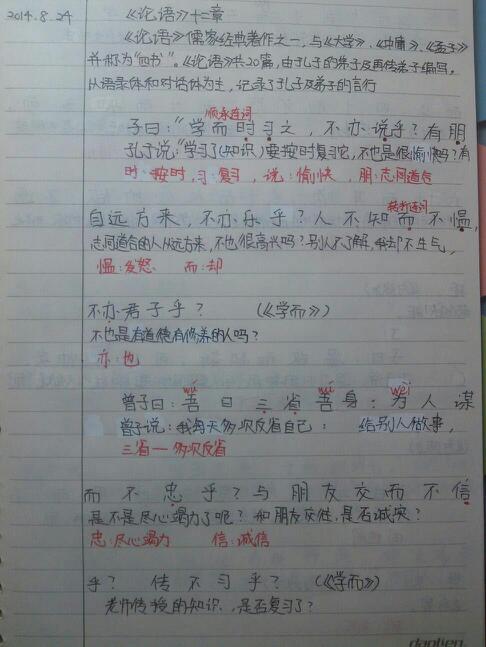 2014.8.24
《论语》十二章
《论语》儒家经典著作之一,与《大学》、《中庸》、《孟子》
并称为"四书"。《论语》共20篇,由孔子的弟子及再传弟子编写,
以语录体和对话体为主,记录了孔子及弟子的言行
顺承连词
子曰:"学而时习之,不亦说乎?有朋
孔子说:"学习了(知识)要按时复习它,不也是很愉快吗?有
时:按时,习:复习,说:愉快,朋:志同道合
转折连词
自远方来,不亦乐乎?人不知而不愠,
志同道合的人从远方来,不也很高兴吗?别人不了解,我却不生气,
愠:发怒 而:却
不亦君子乎?(《学而》)
不也是有道德有修养的人吗?
亦:也
wú wú wèi
曾子曰:吾日三省吾身:为人谋
曾子说:我每天多次反省自己:给别人做事,
三省——多次反省
而不忠乎?与朋友交而不信
是不是尽心竭力了呢?和朋友交往,是否诚实?
忠:尽心竭力 信:诚信
乎?传不习乎?(《学而》)
老师传授的知识,是否复习了?